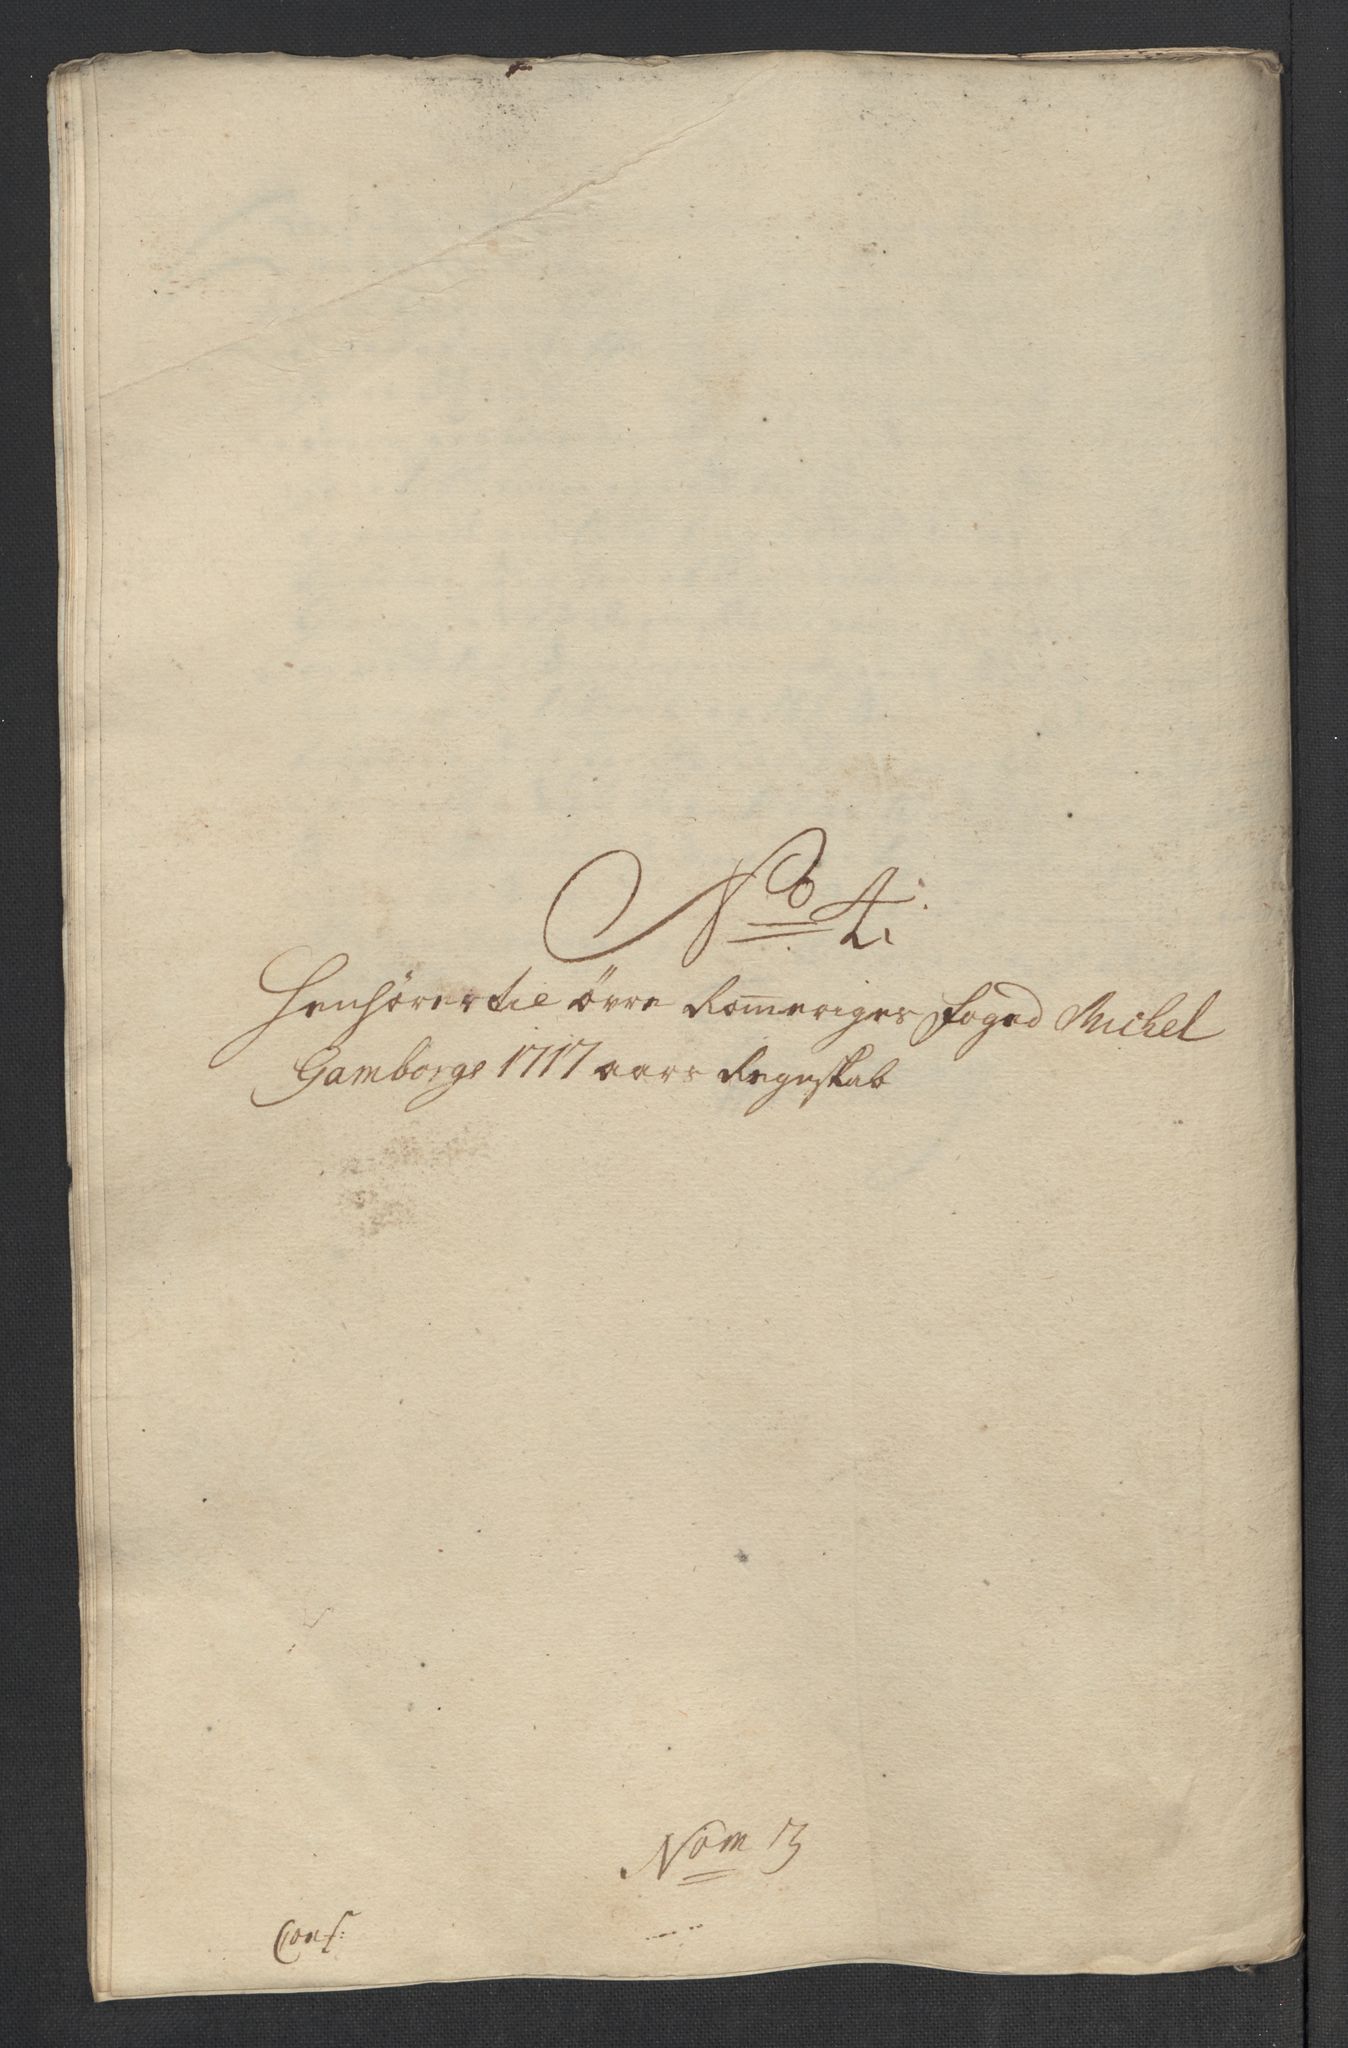 No 4.
Henhörer til övre Romeriges foged Michel
Gamborgs 1717 aars Regnskab
Nom 13
Conf: